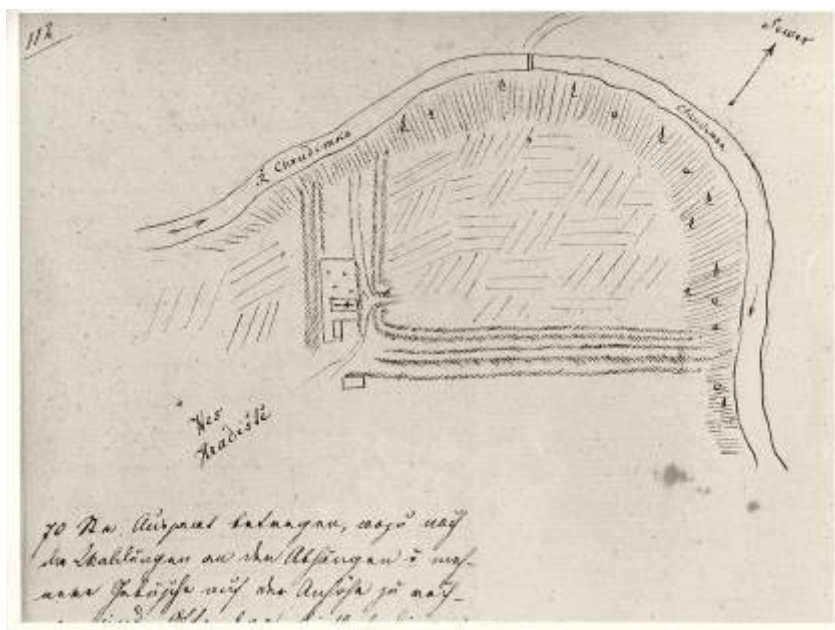 112
Sewer
Ř. Chrudimka
Chrudimka
Wes
Hradiště
70 Ausmaß betragen, wozu noch
die Waldungen an den Abhängen u meh-
rere Gebüsche auf der Anhöhe zu rech-